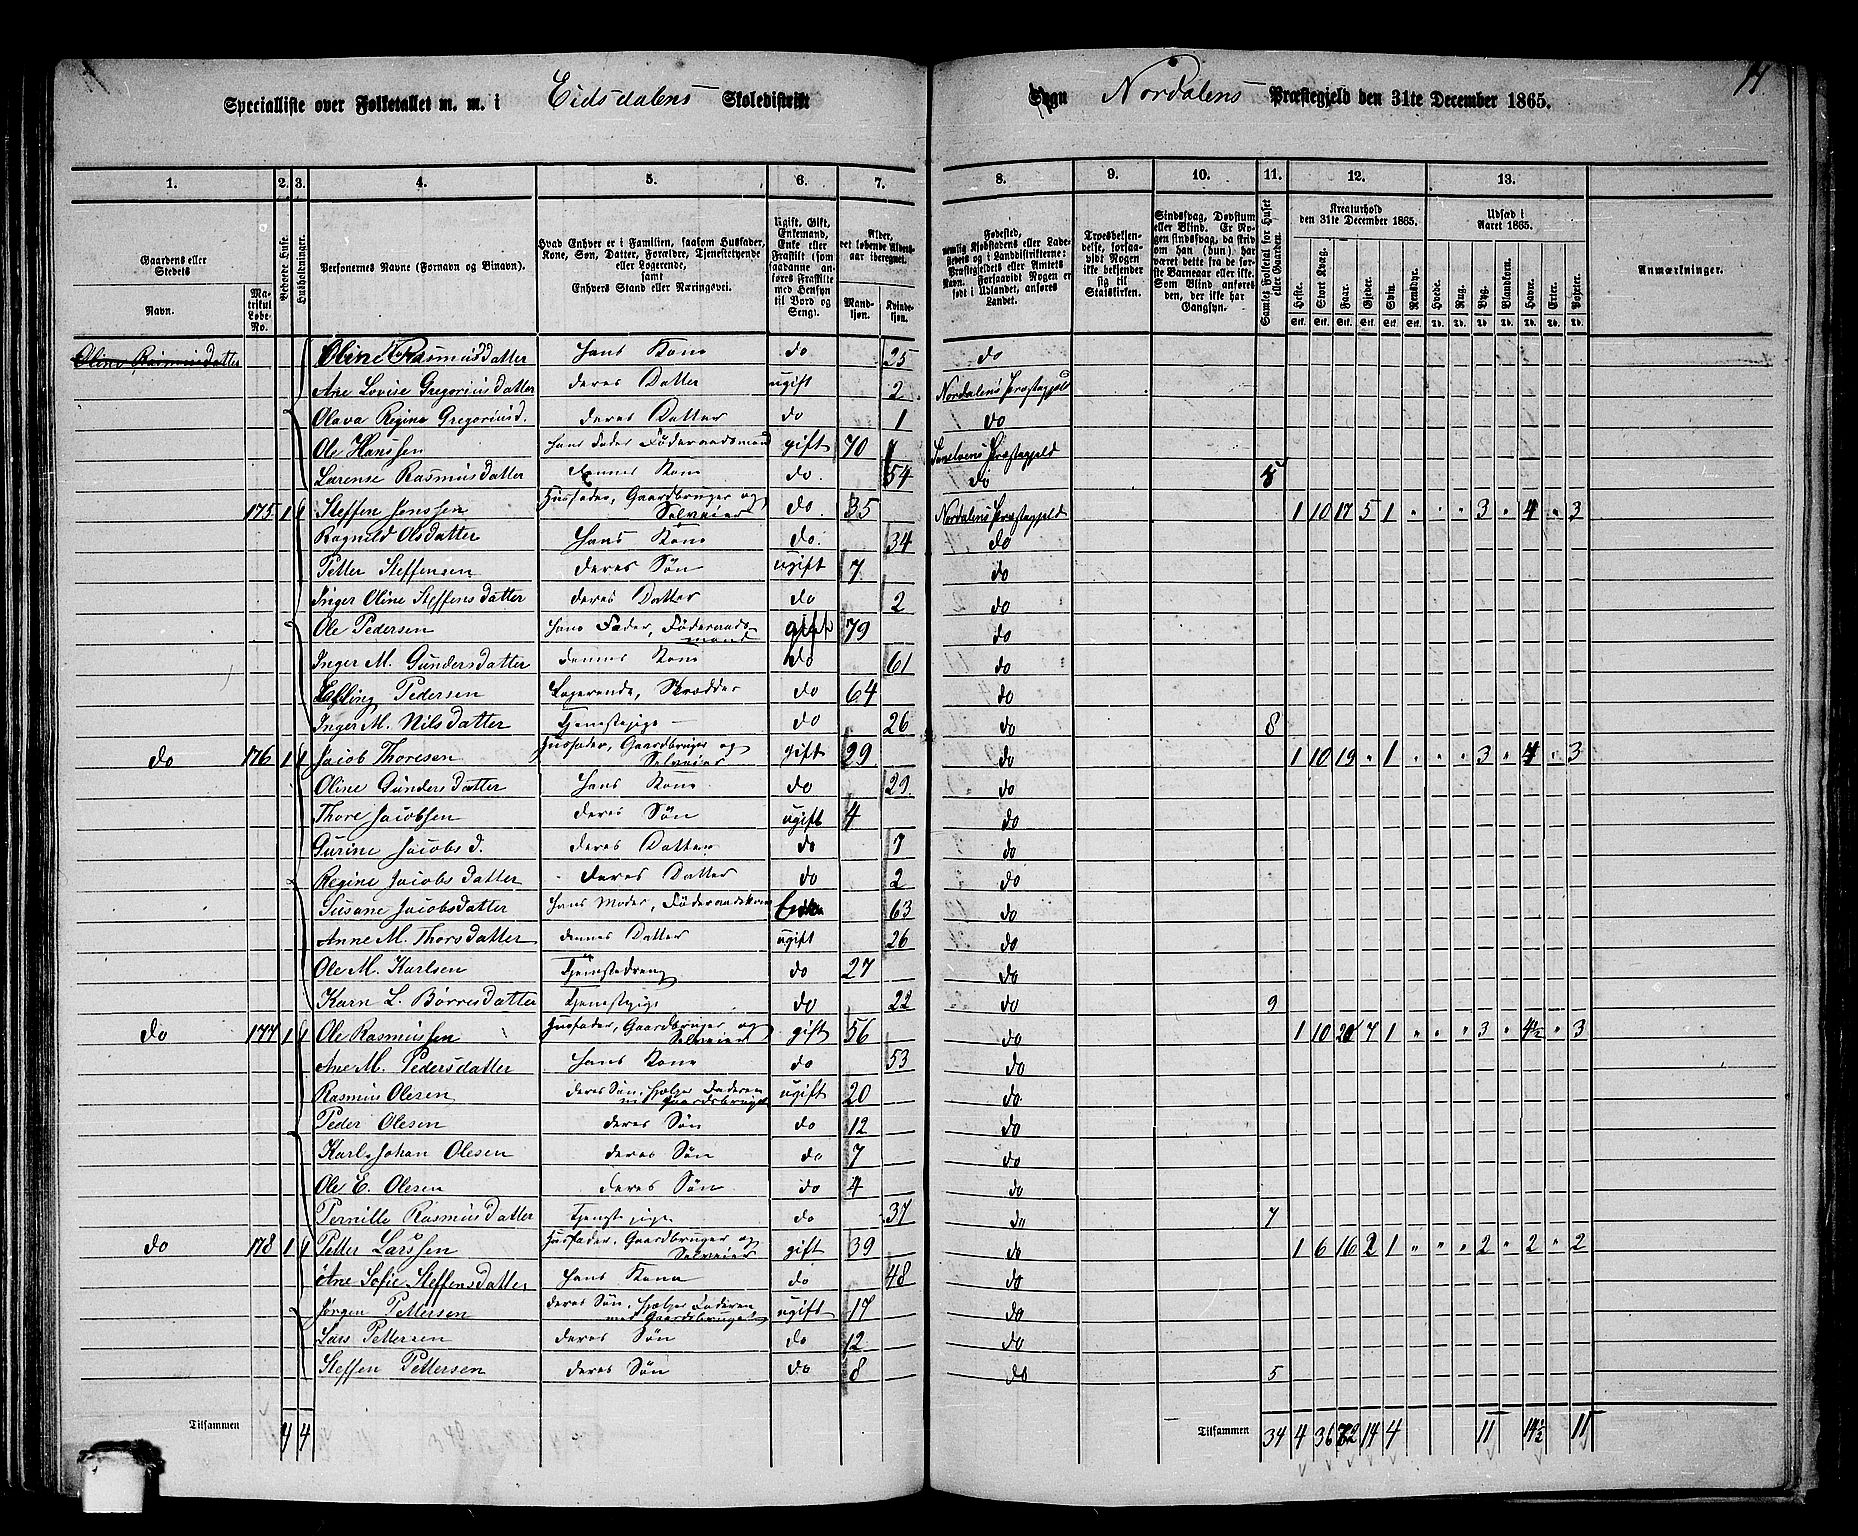 14
Specialliste over Folketallet m. m. i Eidsdalens Skoledistrikt Sogn Nordalens Præstegjeld den 31te December 1865.
1. 2. 3. 4. 5. 6. 7. 8. 9. 10. 11. 12. 13.
Gaardens eller Stedets Navn. Matrikul Løbe-No. Beboede Huse. Husholdninger. Personernes Navne (Fornavn og Binavn). Hvad Enhver er i Familien, saasom Husfader, Kone, Søn, Datter, Forældre, Tjenestetyende eller Logerende, samt Enhvers Stand eller Næringsvei. Ugift, Gift, Enkemand, Enke eller Fraskilt (som saadanne anføres Fraskilte med Hensyn til Bord og Seng). Alder, det løbende Aldersaar iberegnet. Mandkjøn. Kvindekjøn. Fødested, nemlig Kjøbstadens eller Ladestedets og i Landdistrikterne: Præstegjeldets eller Amtets Navn. Forsaavidt Nogen er født i Udlandet, anføres Landet. Troesbekjendelse, forsaavidt Nogen ikke bekjender sig til Statskirken. Sindssvag, Døvstum eller Blind. Er Nogen sindssvag, da skriv om han (hun) har været dette fra de første Barneaar eller ikke. Som Blind anføres den, der ikke har Gangsyn. Samlet Folketal for Huset eller Gaarden. Kreaturhold den 31te December 1865. Heste. Stort Kvæg. Faar. Gjeder. Svin. Rensdyr. Udsæd i Aaret 1865. Hvede. Rug. Byg. Blandkorn. Havre. Erter. Poteter. Anmærkninger.
Stk. Stk. Stk. Stk. Stk. Stk. Td. Td. Td. Td. Td. Td. Td.
Oline Rasmusdatter Oline Rasmusdatter hans Kone do 25 do
Ane Lovise Gregoriusdatter deres Datter ugift 2 Nordalens Præstegjeld
Olava Regine Gregoriusd. deres Datter do 1 do
Ole Hanssen hans Fader Föderaadsmand gift 70 Præstegjeld
Larense Rasmusdatter dennes Kone do. 54 do
175 1 1 Steffen Jenssen Husfader, Gaardbruger og Selveier do. 35 Nordalens Præstegjeld 1 10 17 5 1 " " " 3 " 4 " 3
Ragnild Olsdatter hans Kone do. 34 do
Petter Steffensen deres Søn ugift 7 do
Inger Oline Steffensdatter deres Datter do 2 do
Ole Pedersen hans Fader, Föderaadsmand gift 79 do
Inger M. Gundersdatter dennes Kone do 61 do
Pedersen Logerende, Skrædder do 64 do
Inger M. Nilsdatter Tjenestepige do 26 do 8
do 176 1 1 Jacob Thoresen Husfader, Gaardbruger og Selveier gift 29 do 1 10 19 " 1 " " " 3 " 4 " 3
Oline Gundersdatter hans Kone do 29 do
Thore Jacobsen deres Søn ugift 4 do
Gurine Jacobsd. deres Datter do 7 do
Regine Jacobsdatter deres Datter do 2 do
Susane Jacobsdatter hans Moder, Föderaadskone Enke 63 do
Anne M. Thorsdatter dennes Datter ugift 26 do
Ole M. Karlsen Tjenestedreng do 27 do
Karn L. Börresdatter Tjenestepige do 22 do 9
do 177 1 1 Ole Rasmussen Husfader, Gaardbruger og Selveier gift 56 do 1 10 20 7 1 " " " 3 " 4½ " 3
Ane M. Pedersdatter hans Kone do 53 do
Rasmus Olesen deres Søn, hjelper Faderen m Gaardsbruget ugift 20 do
Peder Olesen deres Søn do 12 do
Karl Johan Olesen deres Søn do 7 do
Ole E. Olesen deres Søn do 4 do
Pernille Rasmusdatter Tjenestepige do 37 do 7
do 178 1 1 Petter Larssen Husfader, Gaardbruger og Selveier gift 39 do 1 6 16 2 1 " " " 2 " 2 " 2
Ane Sofie Steffensdatter hans Kone do 48 do
Jørgen Pettersen deres Søn, hjelper Faderen med Gaardsbruget ugift 17 do
Lars Pettersen deres Søn do 12 do
Steffen Pettersen deres Søn do 8 do 5
Tilsammen 4 4 Tilsammen 34 4 36 72 14 4 11 14½ 11